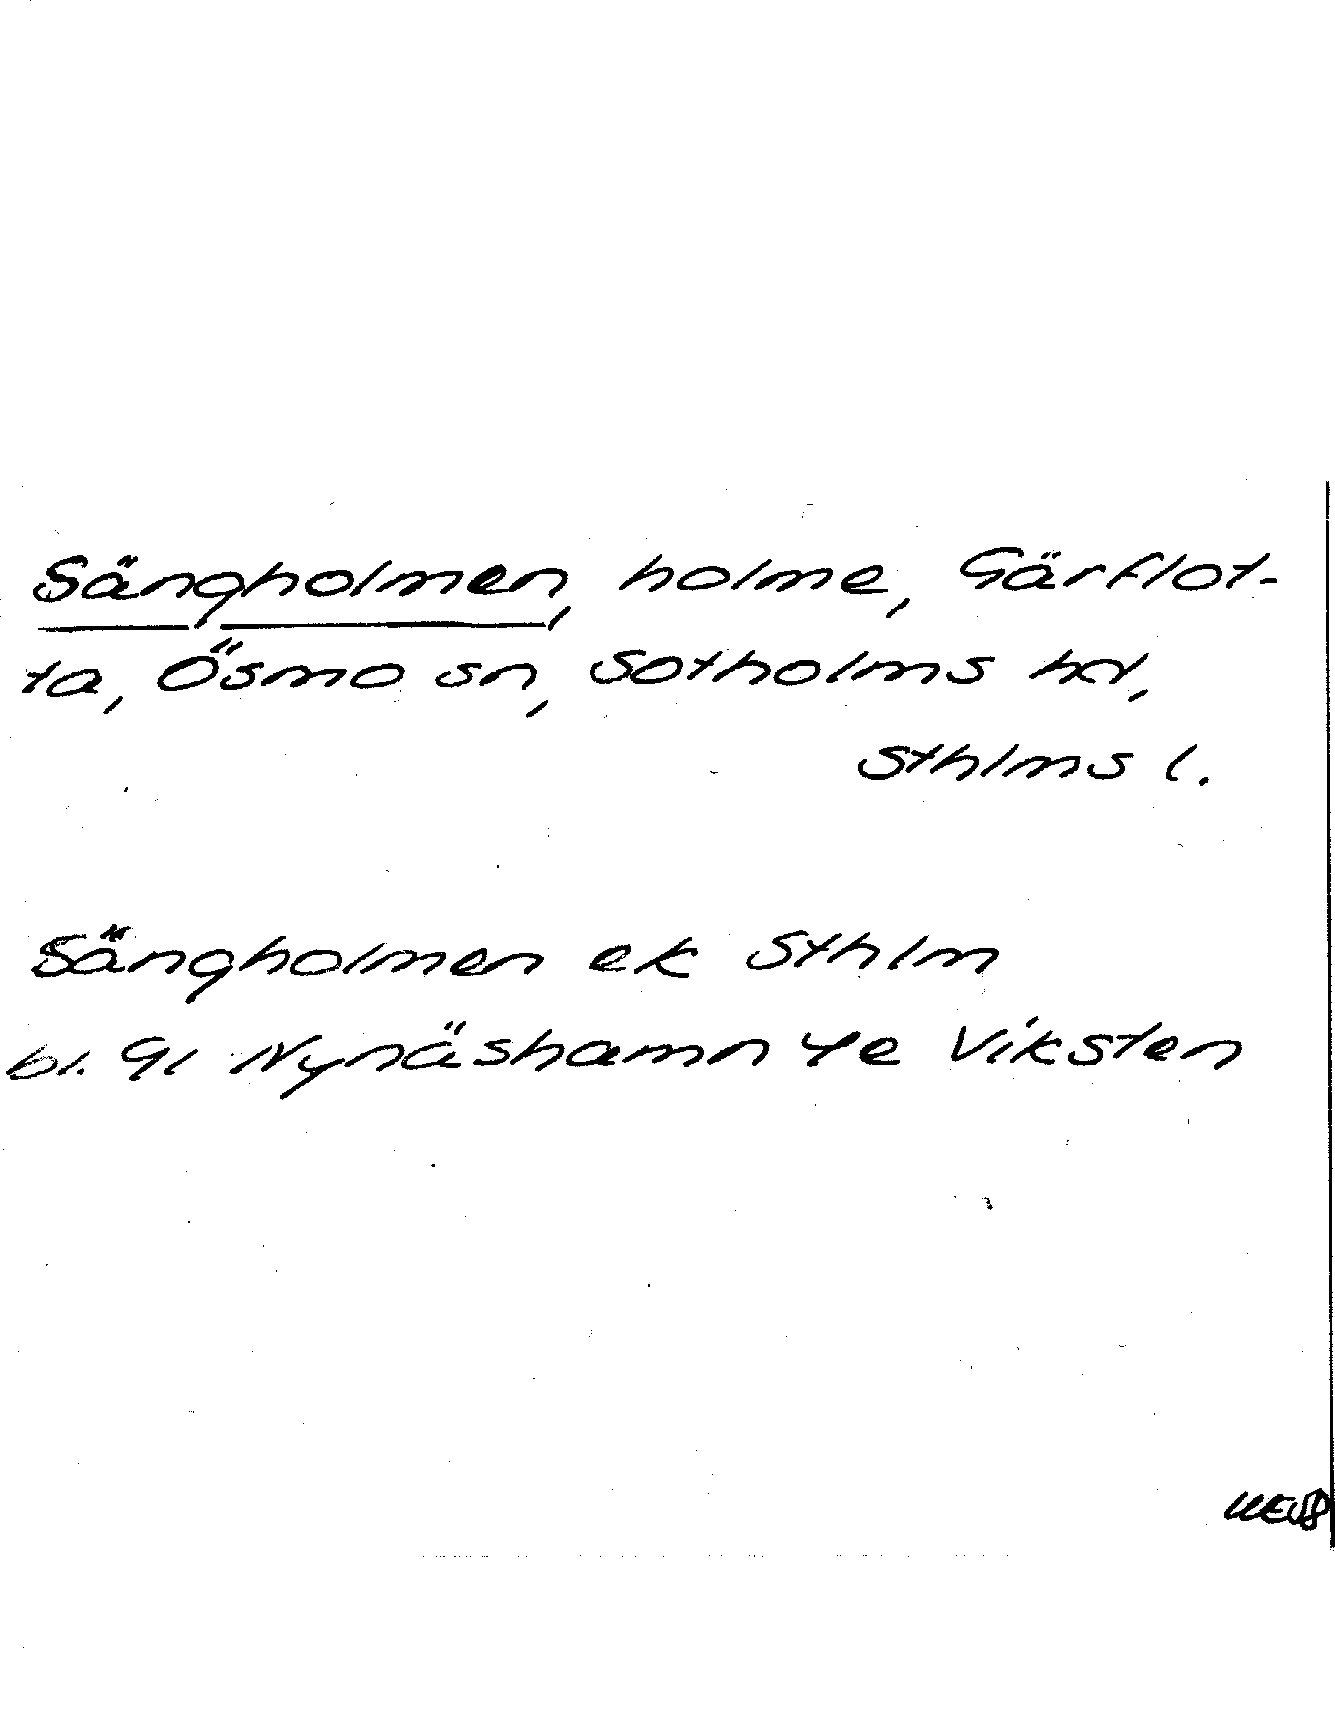 Sängholmen, holme, Gärflot-
ta, Ösmo sn, Sotholms hd,
Sthlms l.
Sängholmen ek Sthlm
bl. 91 Nynäshamn 4e Viksten